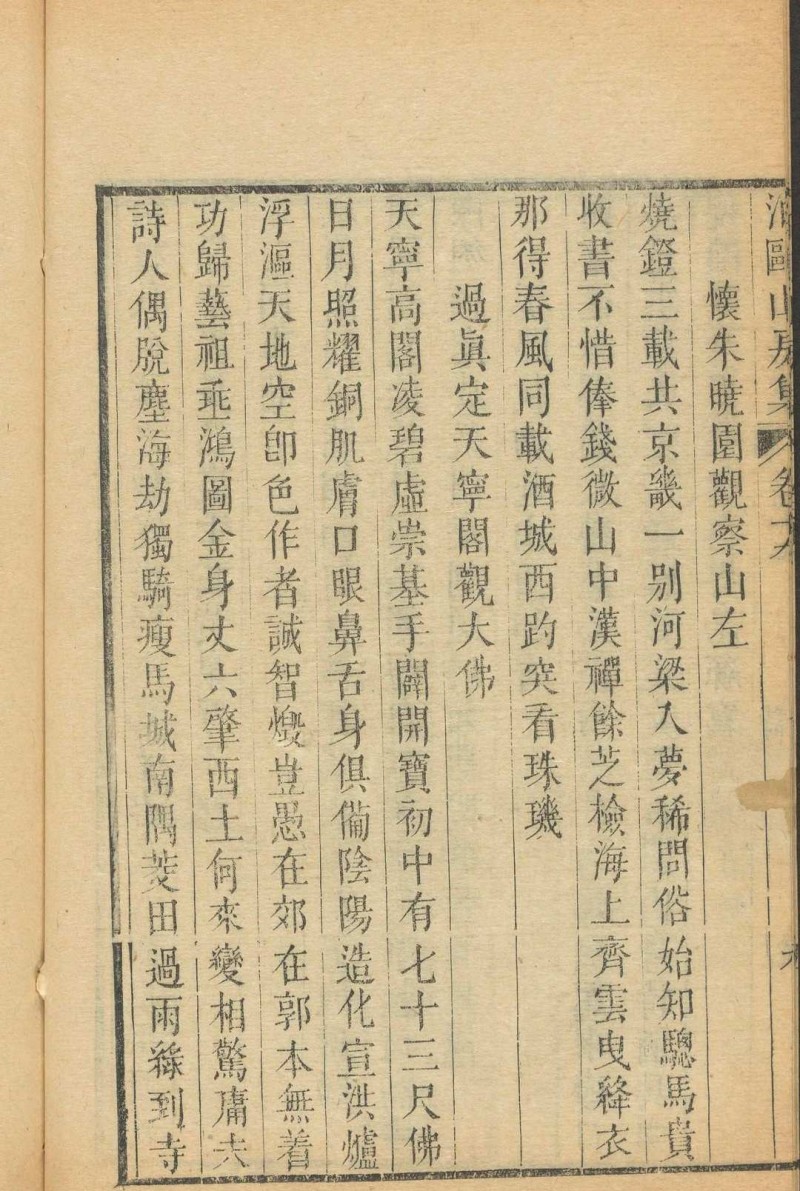 山房集 卷十九
懷朱曉園觀察山左
燒鐙三載共京畿一别河梁入夢稀問俗始知驄馬貴
收書不惜俸錢微山中漢禪餘芝檢海上齊雲曳絳衣
那得春風同載酒城西趵突看珠璣
過眞定天寧閣觀大佛
天寧高閣凌碧虛崇基手闢開寶初中有七十三尺佛
日月照耀銅肌膚口眼鼻舌身俱備陰陽造化宣洪爐
浮漚天地空卽色作者誠智燬豈愚在郊在郭本無着
功歸藝祖垂鴻圖金身丈六肇西土何來變相驚庸夫
詩人偶脫塵海劫獨騎瘦馬城南隅菱田過雨綠到寺